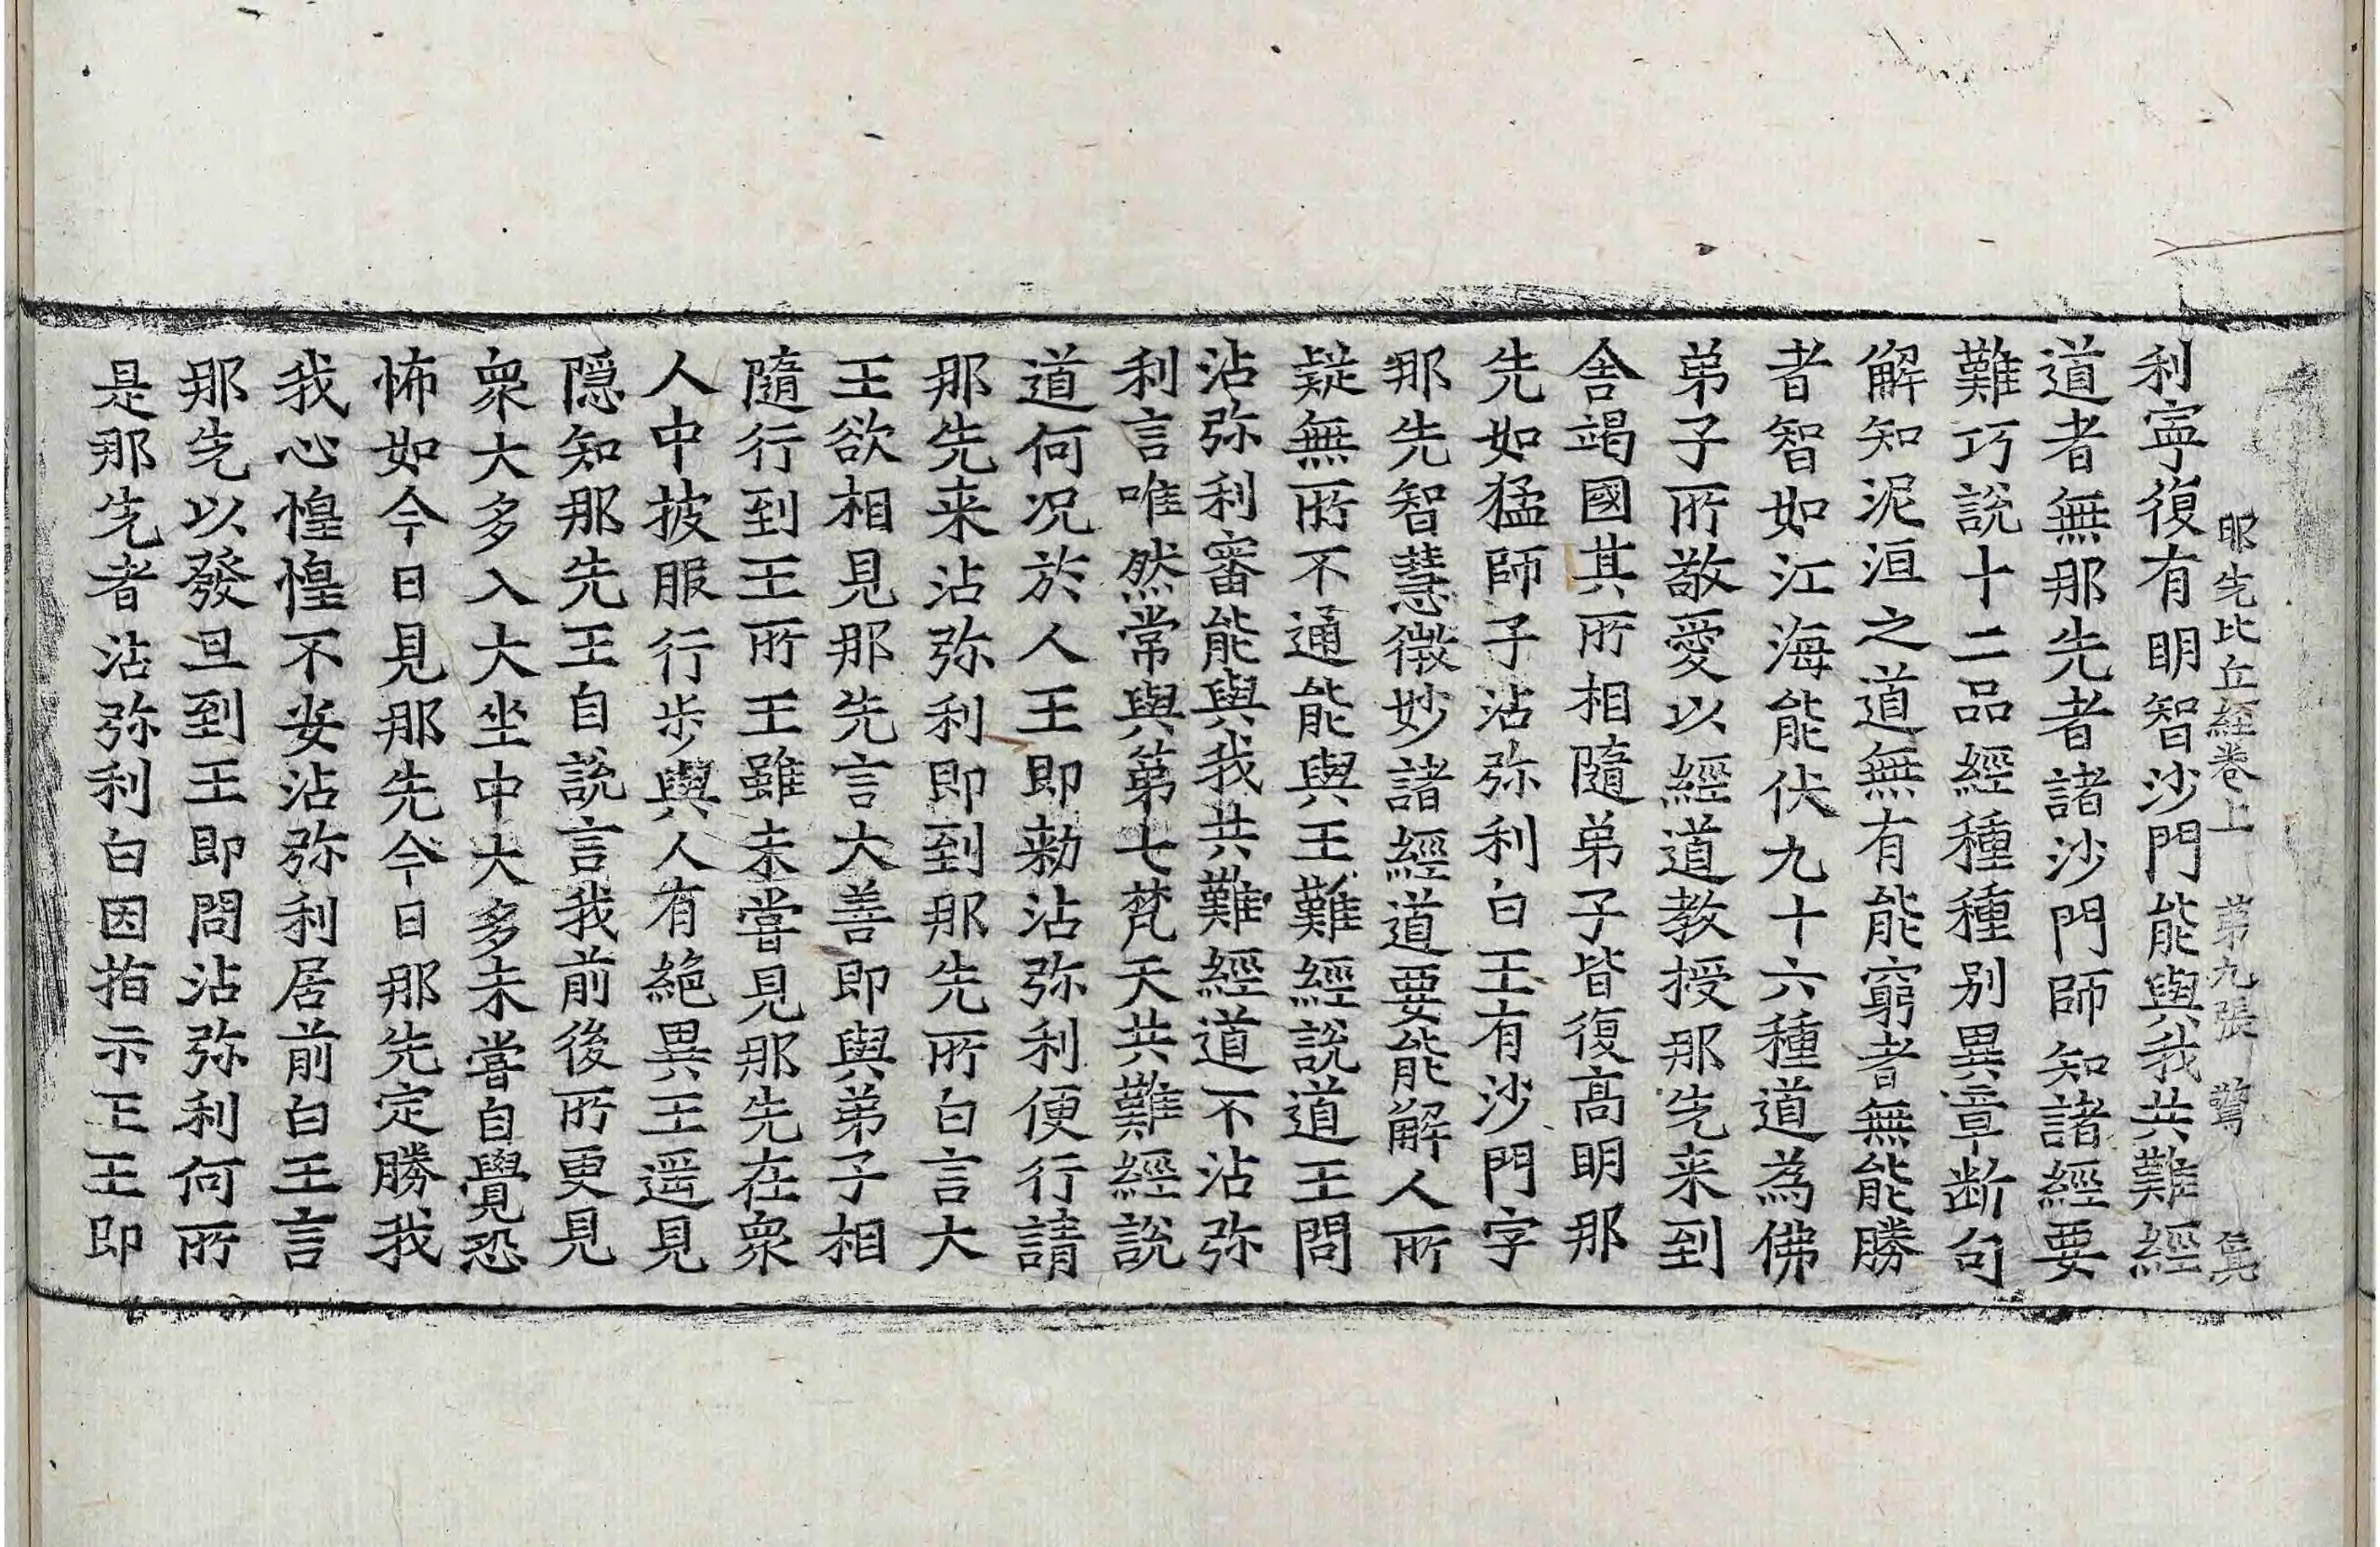 那先比丘經卷上 第九張 驚
利寧復有明智沙門能與我共難經
道者無那先者諸沙門師知諸經要
難巧說十二品經種種別異章断句
解知泥洹之道無有能窮者無能勝
者智如江海能伏九十六種道為佛
弟子所敬愛以經道教授那先来到
舍竭國其所相隨弟子皆復高明那
先如猛師子沾弥利白王有沙門字
那先智慧微妙諸經道要能解人所
疑無所不通能與王難經說道王問
沾弥利審能與我共難經道不沾弥
利言唯然常與第七梵天共難經說
道何况於人王即勑沾弥利便行請
那先来沾弥利即到那先所白言大
王欲相見那先言大善即與弟子相
隨行到王所王雖未嘗見那先在衆
人中披服行步與人有絶異王遥見
隠知那先王自説言我前後所更見
衆大多入大坐中大多未嘗自覺恐
怖如今日見那先今日那先定勝我
我心惶惶不安沾弥利居前白王言
那先以發旦到王即問沾弥利何所
是那先者沾弥利白因指示王王即